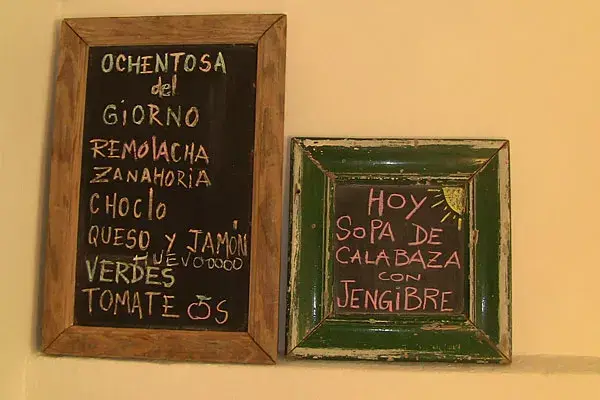 OCHENTOSA
del
GiORNO
REMOLACHA
ZANAHORIA
CHOCLO
QUESO Y JAMÓN
HUEVOOOOO
VERDES
TOMATE OS
HOY
SOPA DE
CALABAZA
CON
JENGIBRE